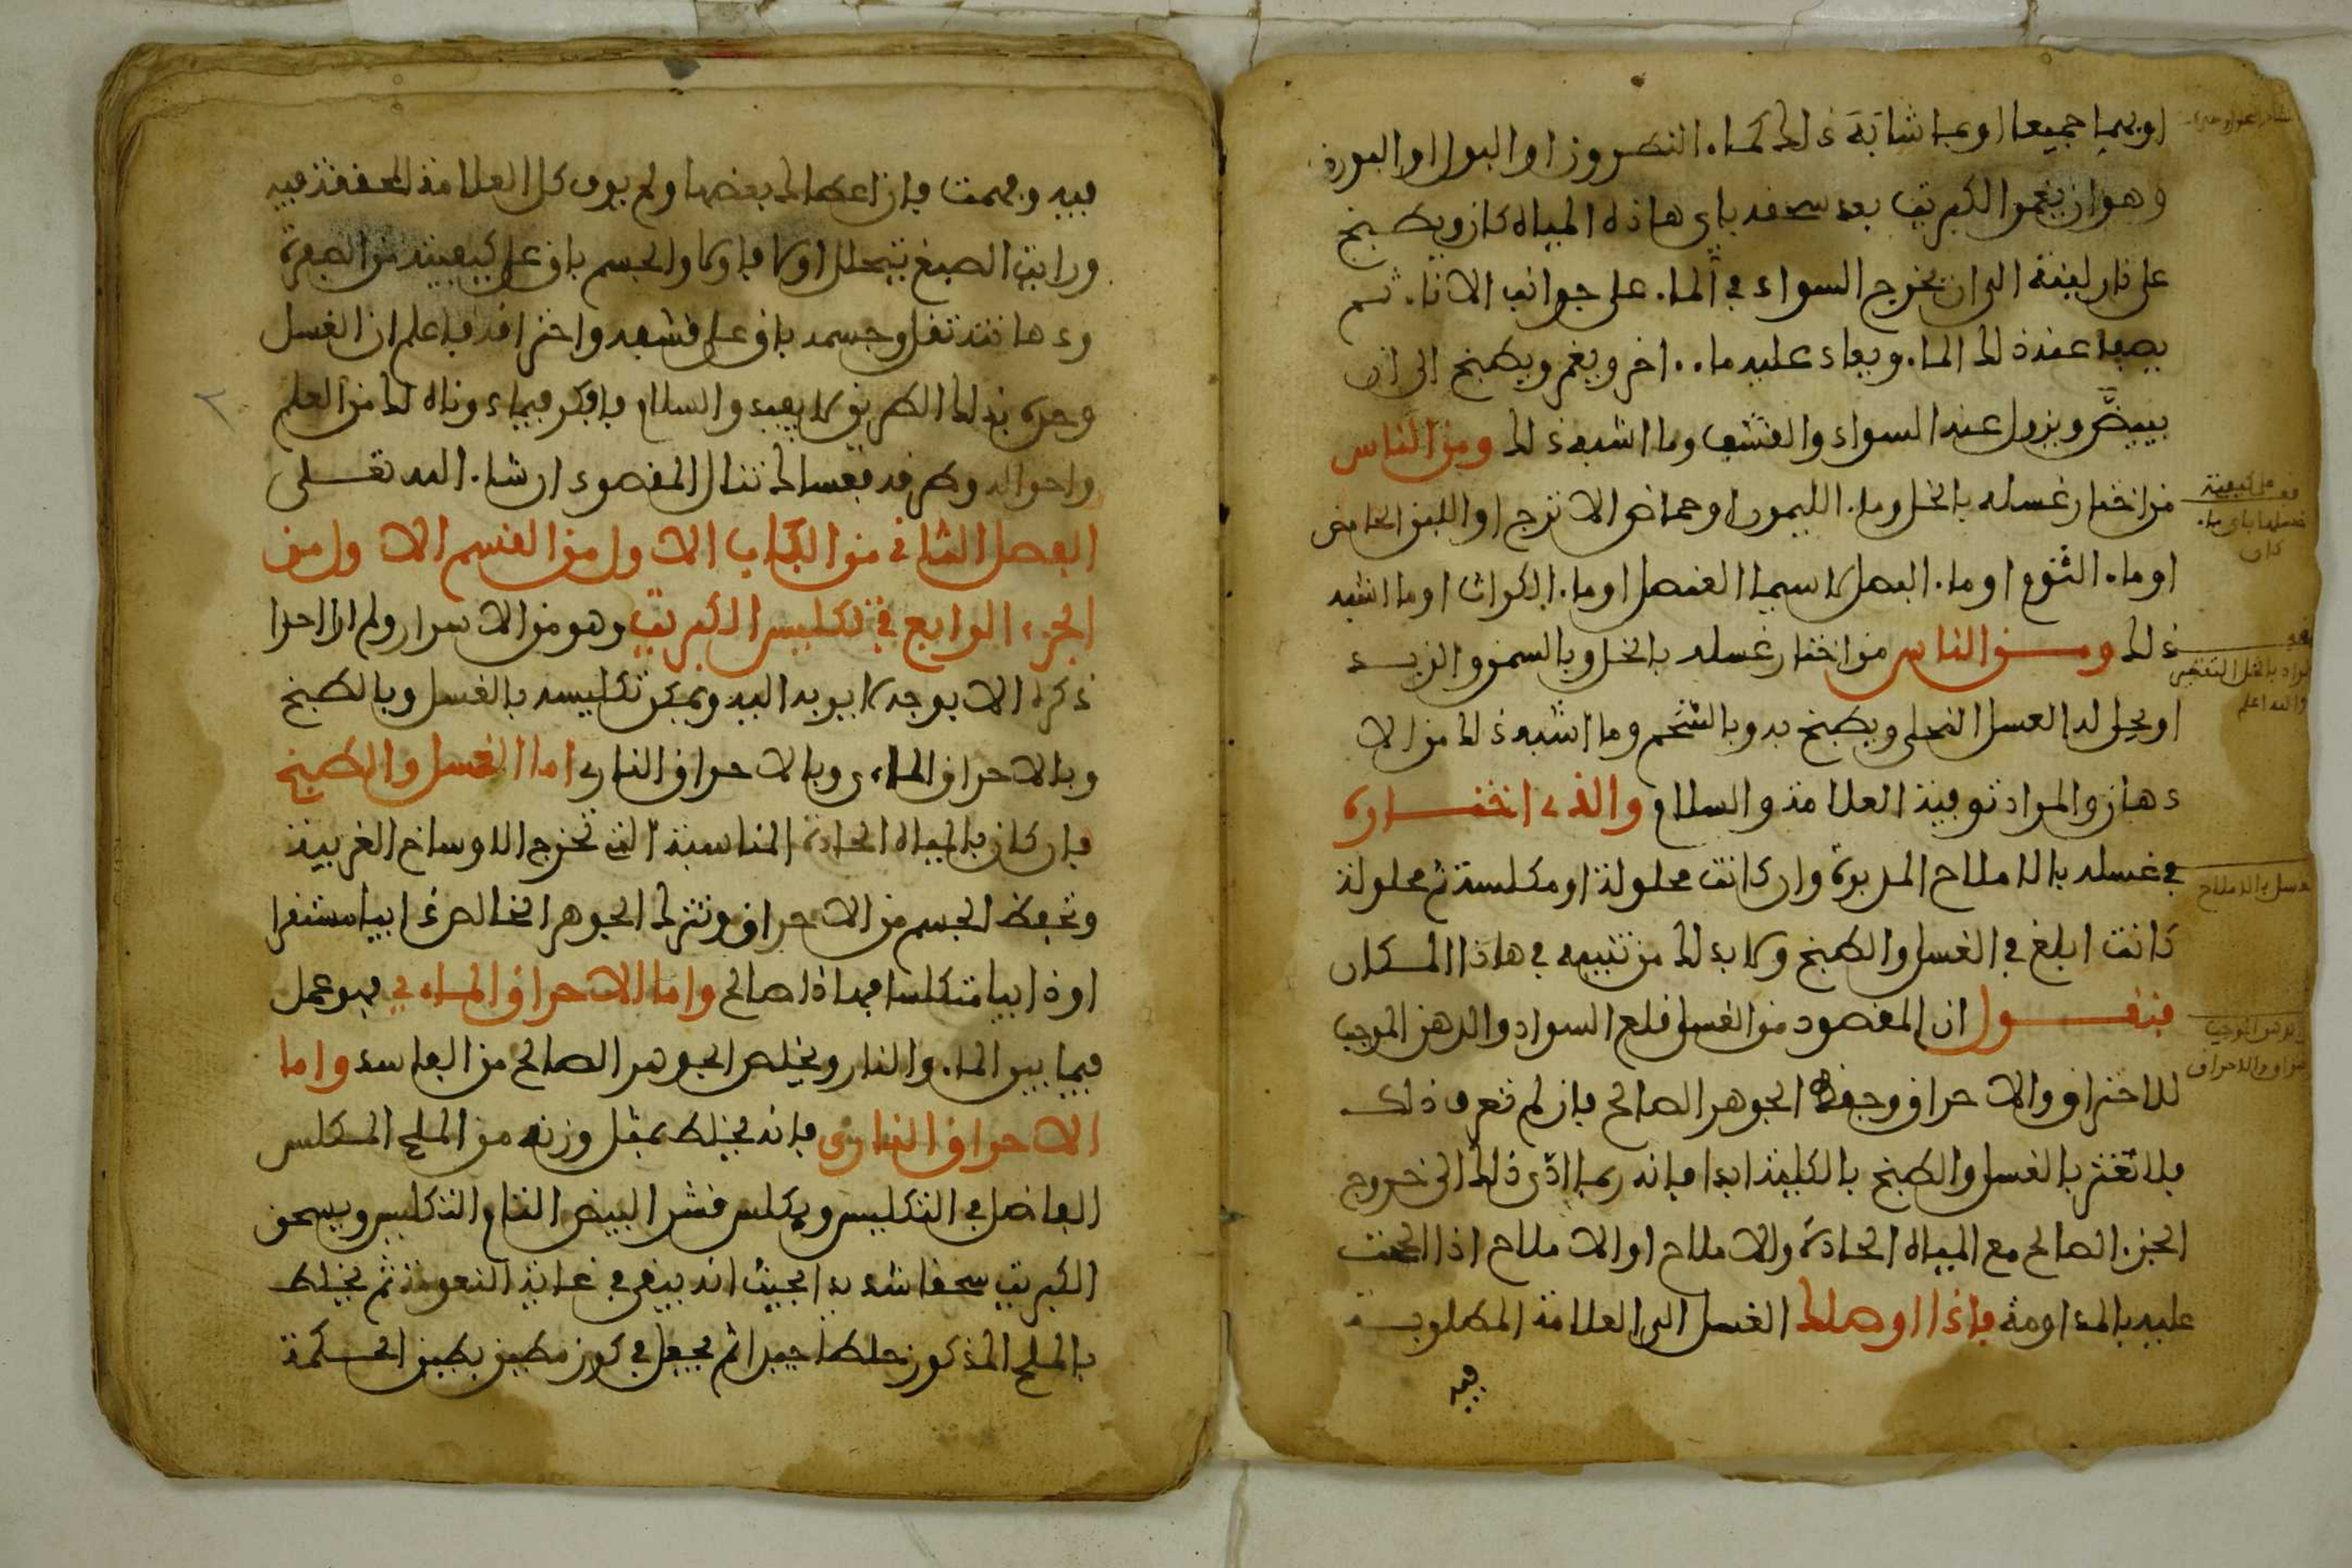 او بهما جميعا او بما شابه ذلك كماء النطرون او البول او البورق
وهو ان يغمر الكبريت بعد سحقه باي هاذه المياه كان ويطبخ
على نار لينة الى ان يخرج السواد في الماء على جوانب الاناء ثم
يصفا عنه ذلك الماء ويعاد عليه ماء اخر ويغمر ويطبخ الى ان
يبيضّ ويزول عنه السواد والقشف وما اشبه ذلك ومن الناس
من اختار غسله بالخل وماء الليمون او حماض الاترج او اللبن الحامض
او ماء الثوم او ماء البصل لا سيما العنصل او ماء الكراث او ما اشبه
ذلك ومن الناس من اختار غسله بالخل وبالسمن والزبد
او يحل له العسل النحلي ويطبخ به وبالشحم وما اشبه ذلك من الا
دهان والمراد توفية العلامة والسلام والذي اختاره
في غسله بالاملاح المدبرة وان كانت محلولة او مكلسة ثم محلولة
كانت ابلغ في الغسل والطبخ ولا بد لك من تنبيه في هاذا المكان
فنقول ان المقصود من الغسل قلع السواد والدهن الموجب
للاحتراق والاحراق وحفظ الجوهر الصالح فان لم تعرف ذلك
فلا تغتر بالغسل والطبخ بالكلية ابدا فانه ربما ادّى ذلك الى خروج
الجزء الصالح مع المياه الحادة والاملاح او الاملاح اذا الححت
عليه بالمداومة فاذا اوصلك الغسل الى العلامة المطلوبة
فيه
من كيفية
غسلها باي ماء
كان
والله اعلم
غسل بالاملاح
فيه وفهمت فان اعطاك بعضها ولم يوف كل العلامة المحققة فيه
ورايت الصبغ يتحلل اولا فاولا والجسم باق على كيفيته من الصفرة
ودهانته تقل وجسمه باق على قشفه واحتراقه فاعلم ان الغسل
وحده بذلك الطريق لا يفيد والسلام فافكر فيما دوناه لك من العلم
واحواله وطرقه فعساك تنال المقصود ان شاء الله تعلى
الفصل الثاني من الكتاب الاول من القسم الاول من
الجزء الرابع في تكليس الكبريت وهو من الاسرار ولم ار احدا
ذكره الا بوجه لا يوبه اليه ويمكن تكليسه بالغسل وبالطبخ
وبالاحراق الماءي وبالاحراق الناري اما الغسل والطبخ
فان كان بالمياه الحادة المناسبة التي تخرج الاوساخ الغريبة
وتحفظ الجسم من الاحراق وتترك الجوهر الخالص ذابيا مشفرا
او ذابيا متكلسا فهاذا صالح واما الاحراق الماءي فهو عمل
فيما بين الماء والنار ويخلص الجوهر الصالح من الفاسد واما
الاحراق الناري فانه يخلط بمثل وزنه من الملح المكلس
الفاضل في التكليس ويكلس قشر البيض التام التكليس ويسحق
الكبريت سحقا شديدا بحيث انه يبقى في غاية النعومة ثم يخلط
بالملح المذكور خلطا جيدا ثم يجعل في كوز مطين بطين الحكمة